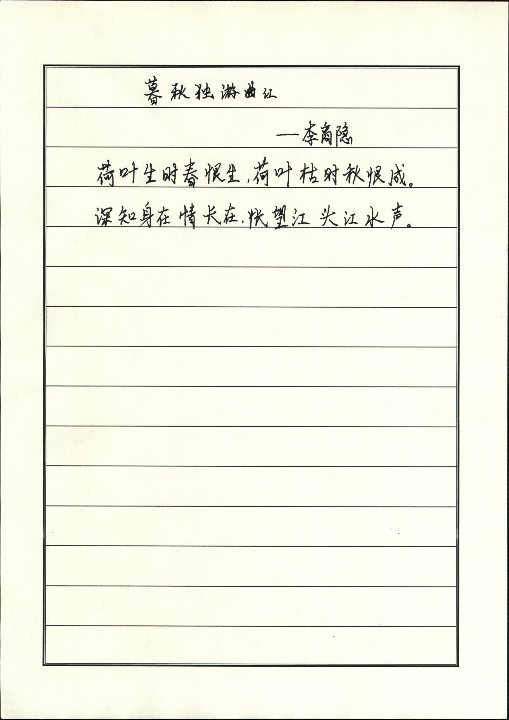 暮秋独游曲江
—李商隐
荷叶生时春恨生,荷叶枯时秋恨成。
深知身在情长在,怅望江头江水声。